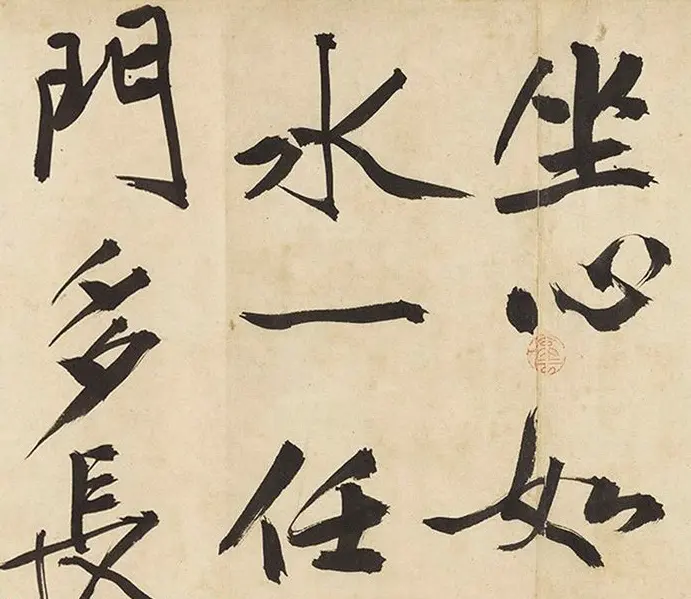 坐心如
水一任
門多長